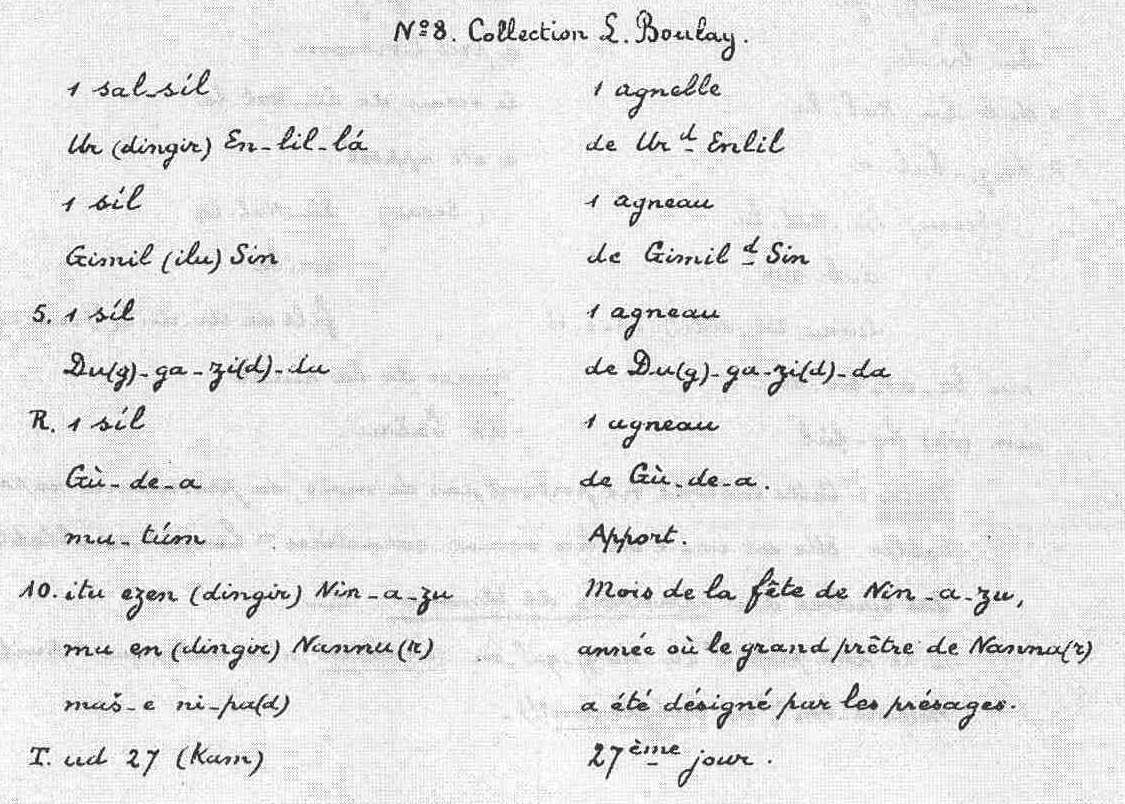 Nº 8. Collection L. Boulay.
1 sal-síl 1 agnelle
Ur (dingir) En-lil-lá de Ur d Enlil
1 síl 1 agneau
Gimil (ilu) Sin de Gimil d Sin
5. 1 síl 1 agneau
Du(g)-ga-zi(d)-da de Du(g)-ga-zi(d)-da
R. 1 síl 1 agneau
Gù-de-a de Gù-de-a.
mu-túm Apport.
10. itu ezen (dingir) Nin-a-zu Mois de la fête de Nin-a-zu,
mu en (dingir) Nannu(r) année où le grand prêtre de Nannu(r)
maš-e ni-pa(d) a été désigné par les présages.
T. ud 27 (Kam) 27ème jour.